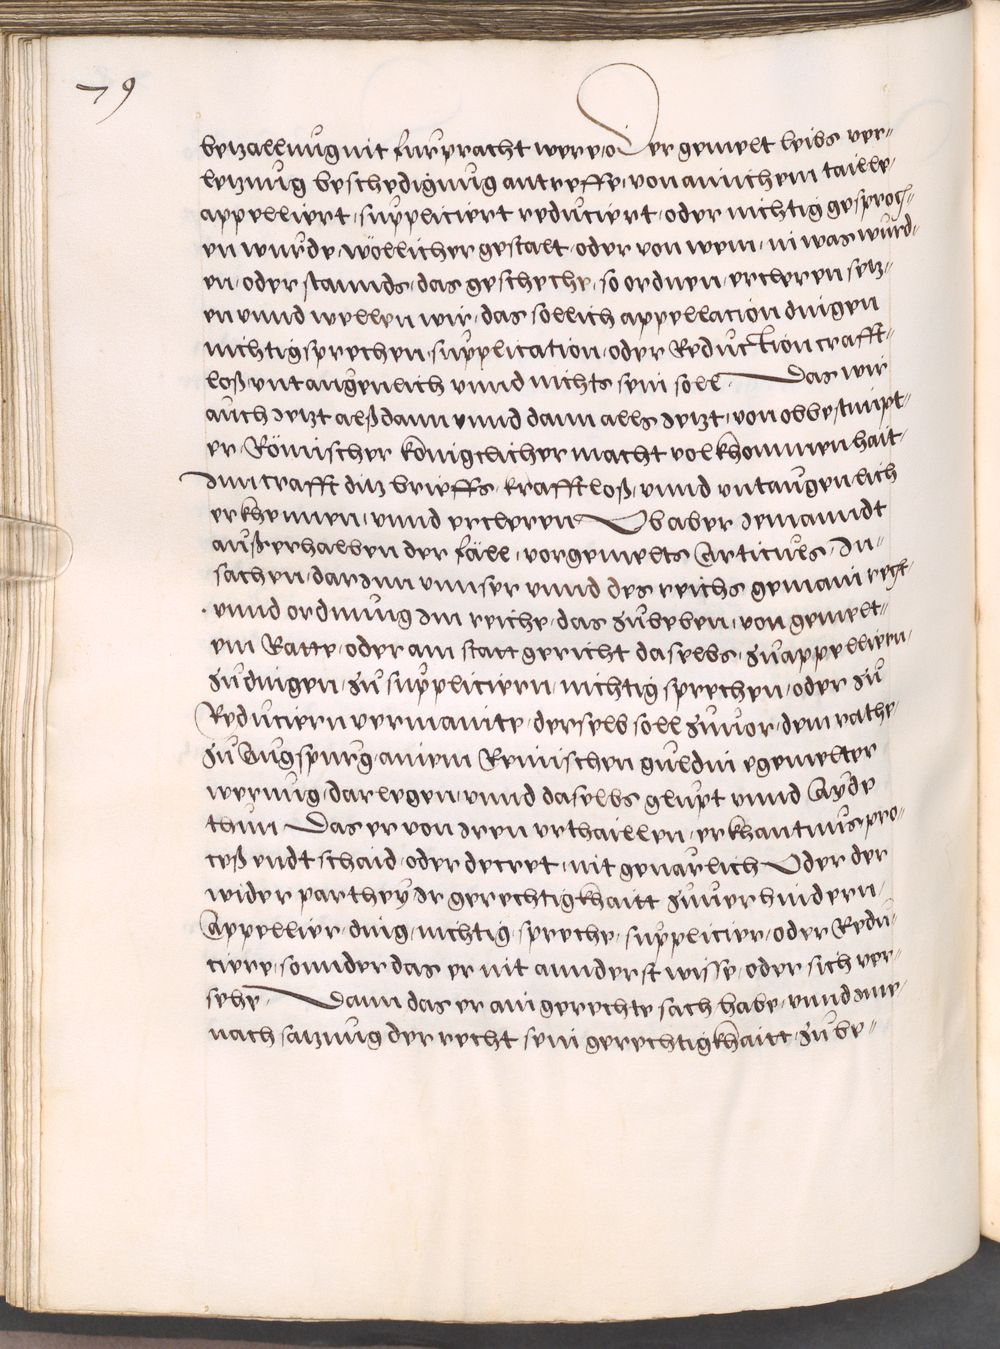 79
betzallnug nit fürpracht were, oder gemelt leibs ver⸗
letzung beschedigung antreffe, von ainichem taille
appelliert, suppliciert reduciert, oder nichtig gesproch⸗
en wurde, wöllicher gestalt, oder von wem, in was wurd⸗
en, oder stannds, das geschehe, so ordnen, ercleren setz⸗
en vnnd wellen wir, das sollich appellacion dingen
nichtigsprechen, supplication, oder Reduction crafft⸗
loß vntaugenlich vnnd nichts sein soll. Das wir
auch Jetzt alßdann vnnd dann alls Jetzt, von obbestimpt⸗
er Römischer königclicher macht volkhommenhait,
Inn crafft ditz brieffs, krafftloß, vnnd vntaugenlich
erkhennen, vnnd ercleren Ob aber Jemanndt
außerhalben der fäll, vorgemelts Articuls, In
sachen, darInn vnnser vnnd des reichs gemain recht
vnnd ordnung Im reiche, das zugeben, von gemelt⸗
em Ratte, oder am statt gericht daselbs, zu appellieren,
zu dingen, zu suppliciern, nichtig sprechen, oder zu
Reduciern vermainte, derselb soll zuuor, dem rathe,
zu Augspurg, ainem Reinischen guldin egemelter
werung, darlegen, vnnd daselbs glupt vnnd Ayde
thun Das er von Jren vrthaillen, erkhantnus pro⸗
ceß endtschaid, oder decret, nit geuarlich Oder der
wider parthey Ir gerechtigkhaitt zuuerhindern,
Appellier, ding, nichtig spreche, supplicier, oder Redu⸗
ciere, sonnder das er nit annderst wisse, oder sich ver⸗
sehe, Dann das er ain gerechte sach habe, vnnd Ime,
nach satzung der recht sein gerechtigkhaitt, zu be⸗